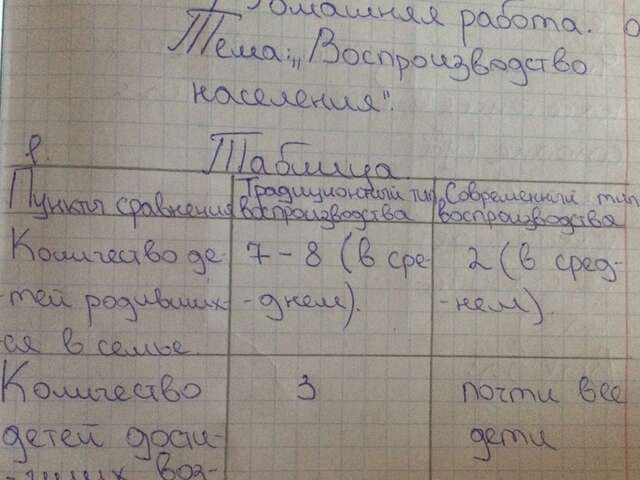 Домашняя работа. О
Тема: „Воспроизводство
населения".
Таблица.
Пункты сравнения
Традиционный тип
воспроизводства
Современный тип
воспроизводства
Количество де-
-тей родивших-
-ся в семье.
7 - 8 (в сре-
-днем).
2 (в сред-
-нем).
Количество
детей дости-
-гших воз-
3
почти все
дети